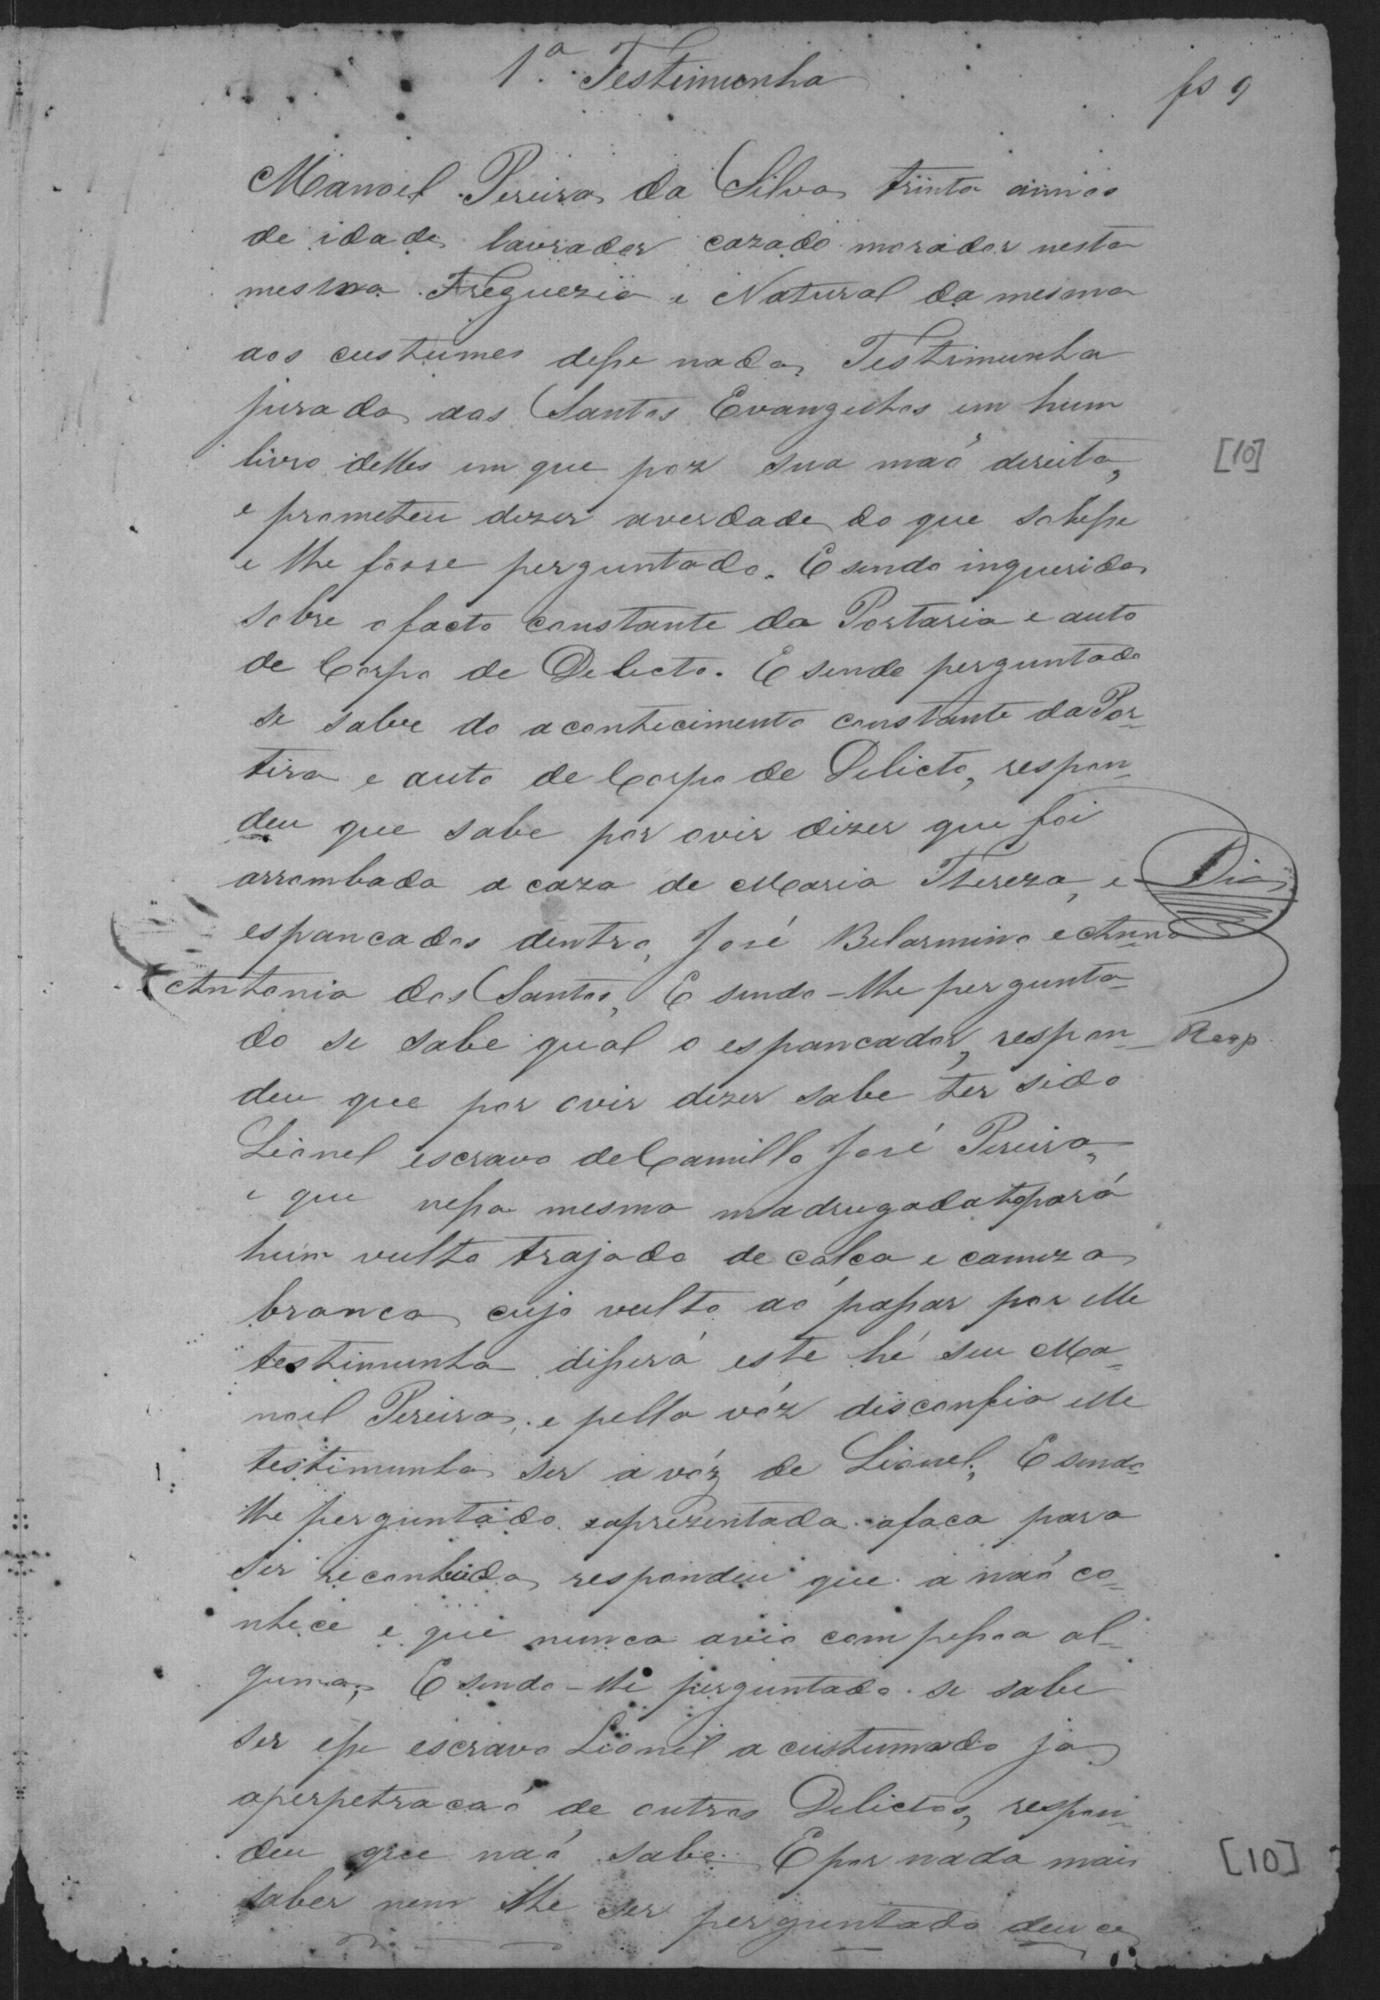 1ª Testimunha
fs 9
Manoel Pereira da Silva trinta annos
de idade lavrador cazado morador nesta
mesma Freguezia e Natural da mesma
aos custumes desse nada, Testimunha
jurada aos Santos Evangelhos em hum
livro delles em que poz sua maõ direita,
[10]
e prometeu dizer averdade do que sobesse
e lhe fosse perguntado. E sendo inquerido
sobre o facto constante da Portaria e auto
de Corpo de Delicto. E sendo perguntado
se sabe do acontecimento constante da Por-
tira e auto de Corpo de Delicto, respon-
deu que sabe por ovir dizer que foi
arrombada a caza de Maria Thereza, e
Dias
espancados dentro, José Belarmino e Anna
Antonia dos Santos, E sendo-lhe pergunta-
do se sabe qual o espancador, respon-
Resp.
deu que por ovir dizer sabe ter sido
Lionel escravo de Camillo José Pereira,
e que nessa mesma madrugada topará
hum vulto trajado de calca e camiza
branca cujo vulto aó passar por elle
testimunha disserá este hé seu Ma-
noel Pereira, e pella vóz disconfia elle
testimunha ser a vóz de Lionel, E sendo
lhe perguntado eaprezentada afaca para
ser reconhecida respondeu que a naó co-
nhece e que nunca avio com pessoa al-
guma, E sendo-lhe perguntado se sabe
ser esse escravo Lionel acustumado já
aperpetracaó de outros Delictos, respon-
deu que naó sabe. E por nada mais
[10]
saber nem lhe ser perguntado deu ce